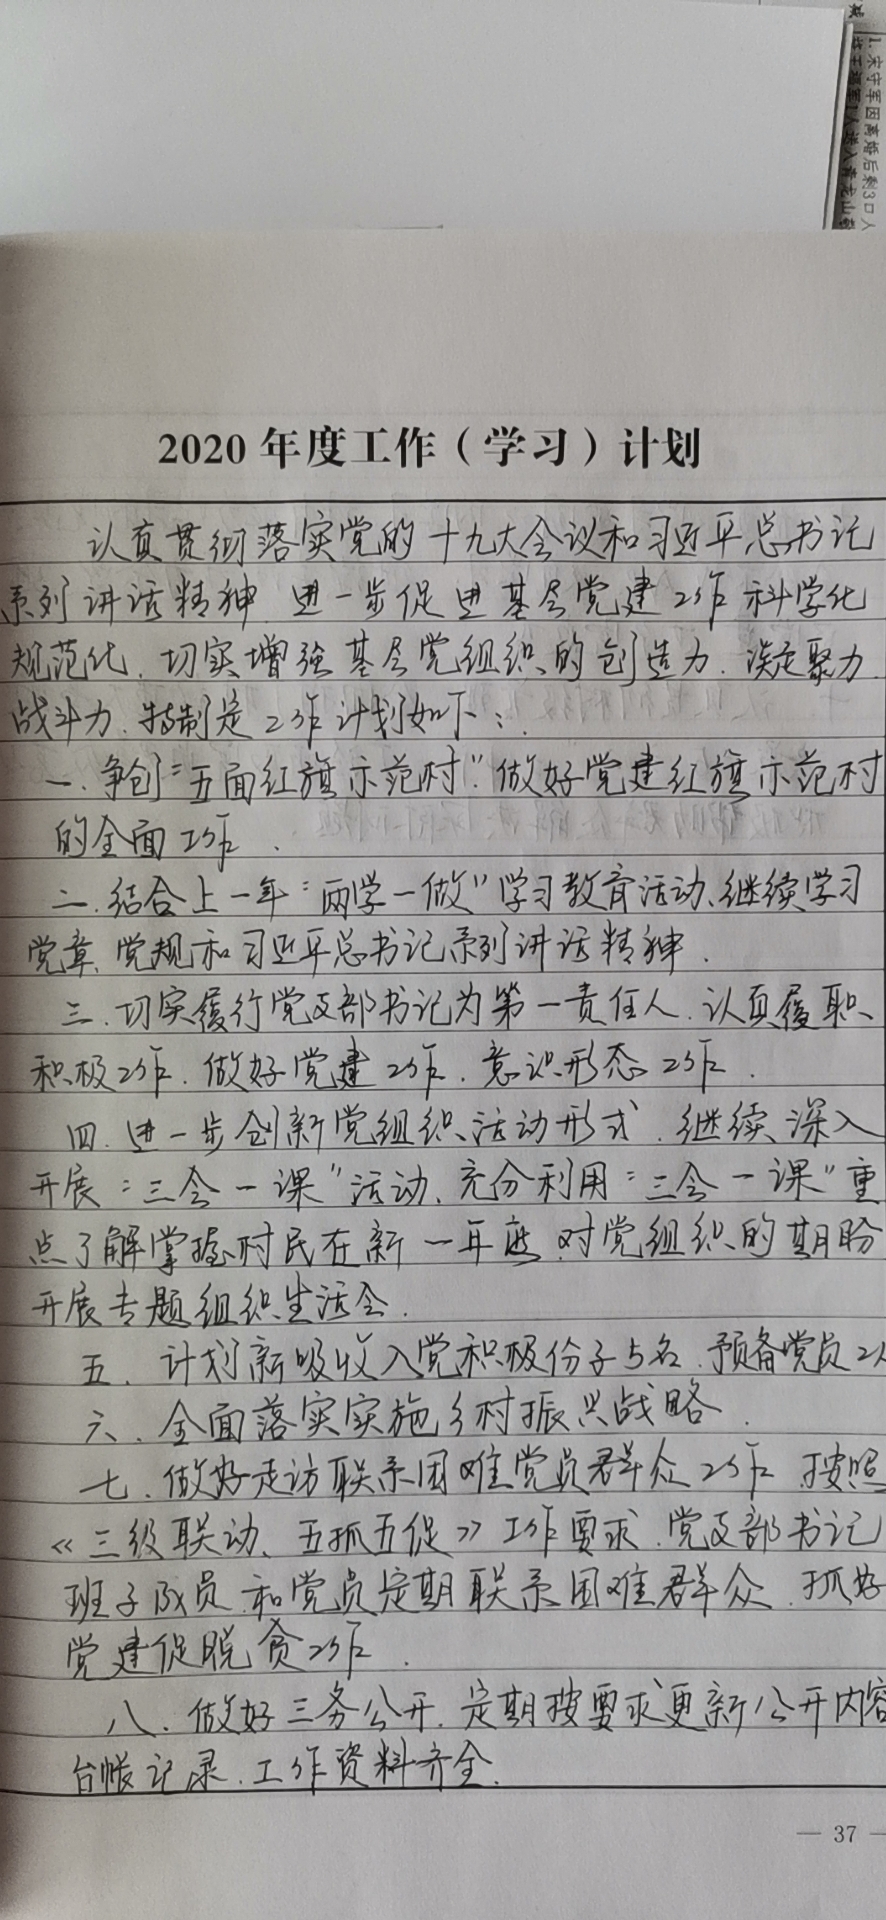 减
1.宋守军因离婚后剩3口人
2020 年度工作（学习）计划
认真贯彻落实党的十九大会议和习近平总书记
系列讲话精神 进一步促进基层党建工作科学化
规范化、切实增强基层党组织的创造力、凝聚力
战斗力、特制定工作计划如下：
一、争创“五面红旗示范村”做好党建红旗示范村
的全面工作、
二、结合上一年“两学一做”学习教育活动、继续学习
党章、党规和习近平总书记系列讲话精神、
三、切实履行党支部书记为第一责任人、认真履职、
积极工作、做好党建工作、意识形态工作、
四、进一步创新党组织活动形式、继续深入
开展“三会一课”活动、充分利用“三会一课”重
点了解掌握村民在新一年度对党组织的期盼
开展专题组织生活会、
五、计划新吸收入党积极份子5名、预备党员2人
六、全面落实实施乡村振兴战略、
七、做好走访联系困难党员群众工作 按照
《三级联动、五抓五促》工作要求、党支部书记
班子成员和党员定期联系困难群众、抓好
党建促脱贫工作、
八、做好三务公开、定期按要求更新公开内容
台帐记录、工作资料齐全、
— 37 —